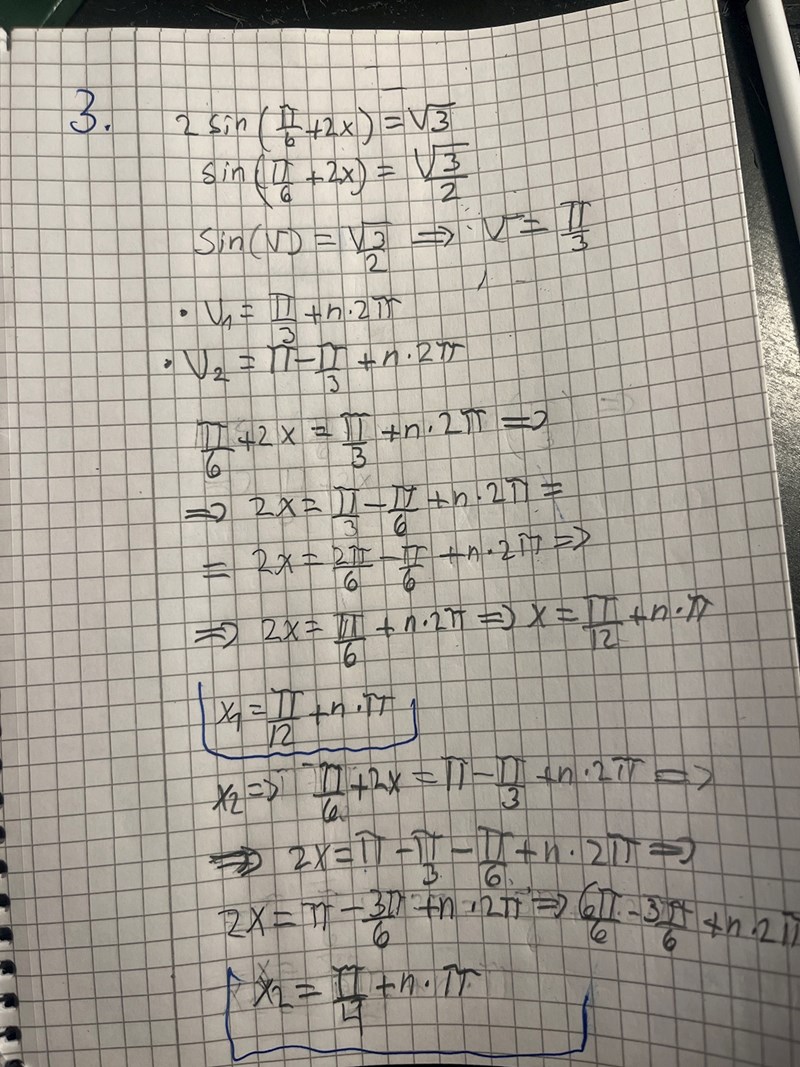 3.
2 sin(π/6 + 2x) = √3
sin(π/6 + 2x) = √3/2
Sin(v) = √3/2 ⇒ v = π/3
• V₁ = π/3 + n·2π
• V₂ = π - π/3 + n·2π
π/6 + 2x = π/3 + n·2π ⇒
⇒ 2x = π/3 - π/6 + n·2π =
= 2x = 2π/6 - π/6 + n·2π ⇒
⇒ 2x = π/6 + n·2π ⇒ x = π/12 + n·π
x₁ = π/12 + n·π
x₂ ⇒ π/6 + 2x = π - π/3 + n·2π ⇒
⇒ 2x = π - π/3 - π/6 + n·2π ⇒
2x = π - 3π/6 + n·2π ⇒ 6π/6 - 3π/6 + n·2π
x₂ = π/4 + n·π